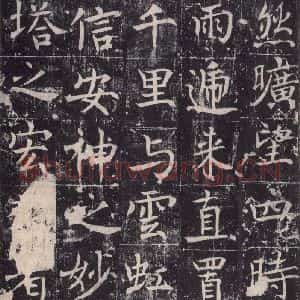 然曠望四時
雨遞来直置
千里与雲虹
信安神之妙
塔之
shufawang.CN